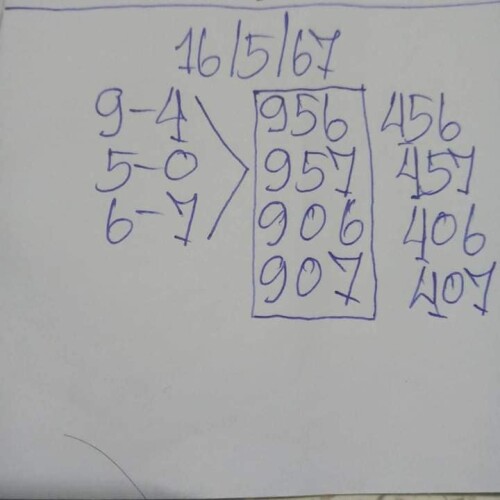 16/5/67
9-4 956 456
5-0 957 457
6-7 906 406
907 407